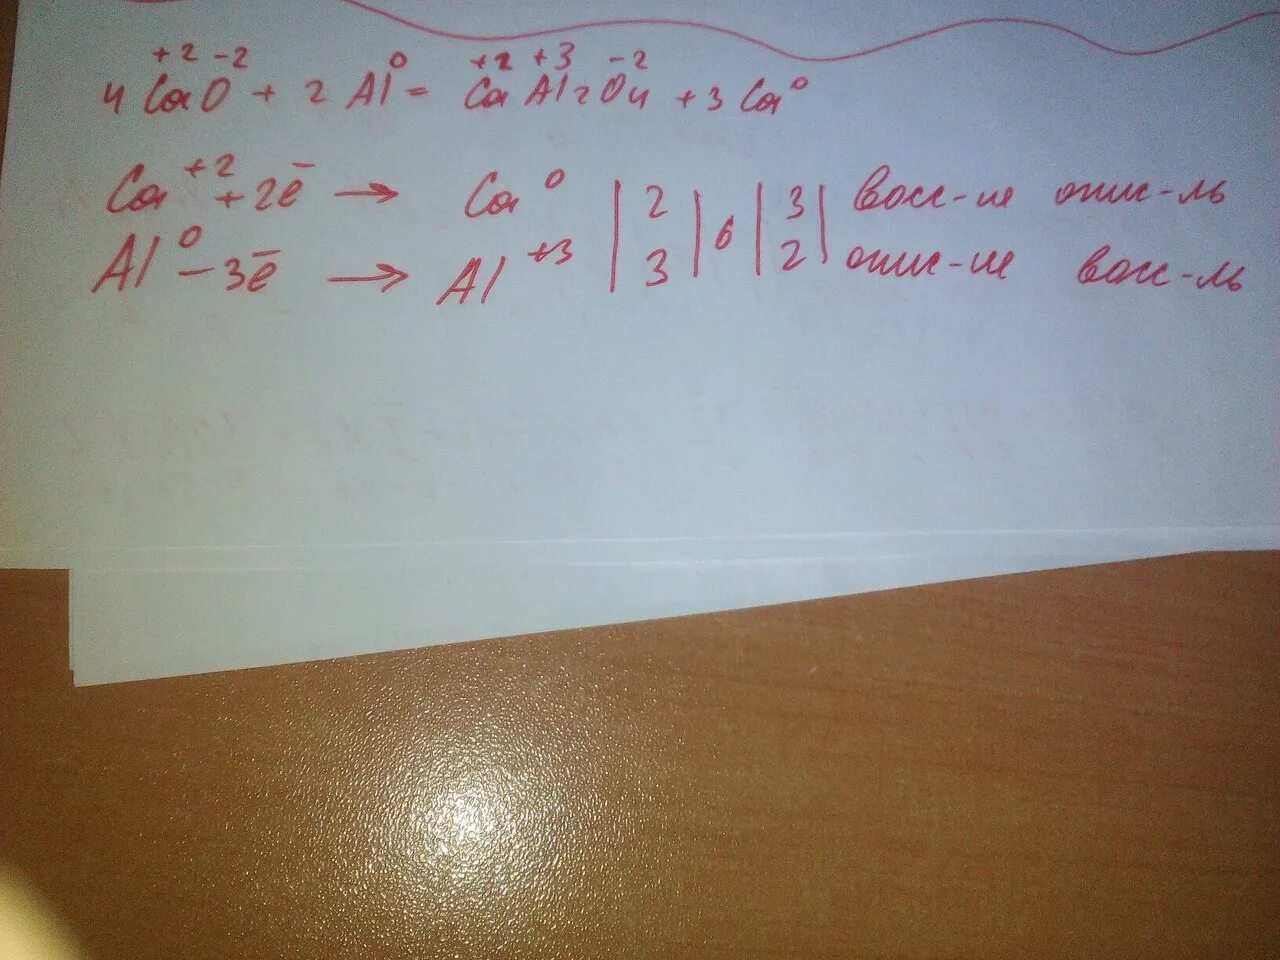 +2 -2 0 +2 +3 -2
4 CaO + 2 Al = Ca Al2O4 + 3 Ca⁰
Ca⁺² + 2e̅ → Ca⁰ | 2 | 6 | 3 | восс-ие окис-ль
Al⁰ - 3e̅ → Al⁺³ | 3 | | 2 | окис-ие восс-ль